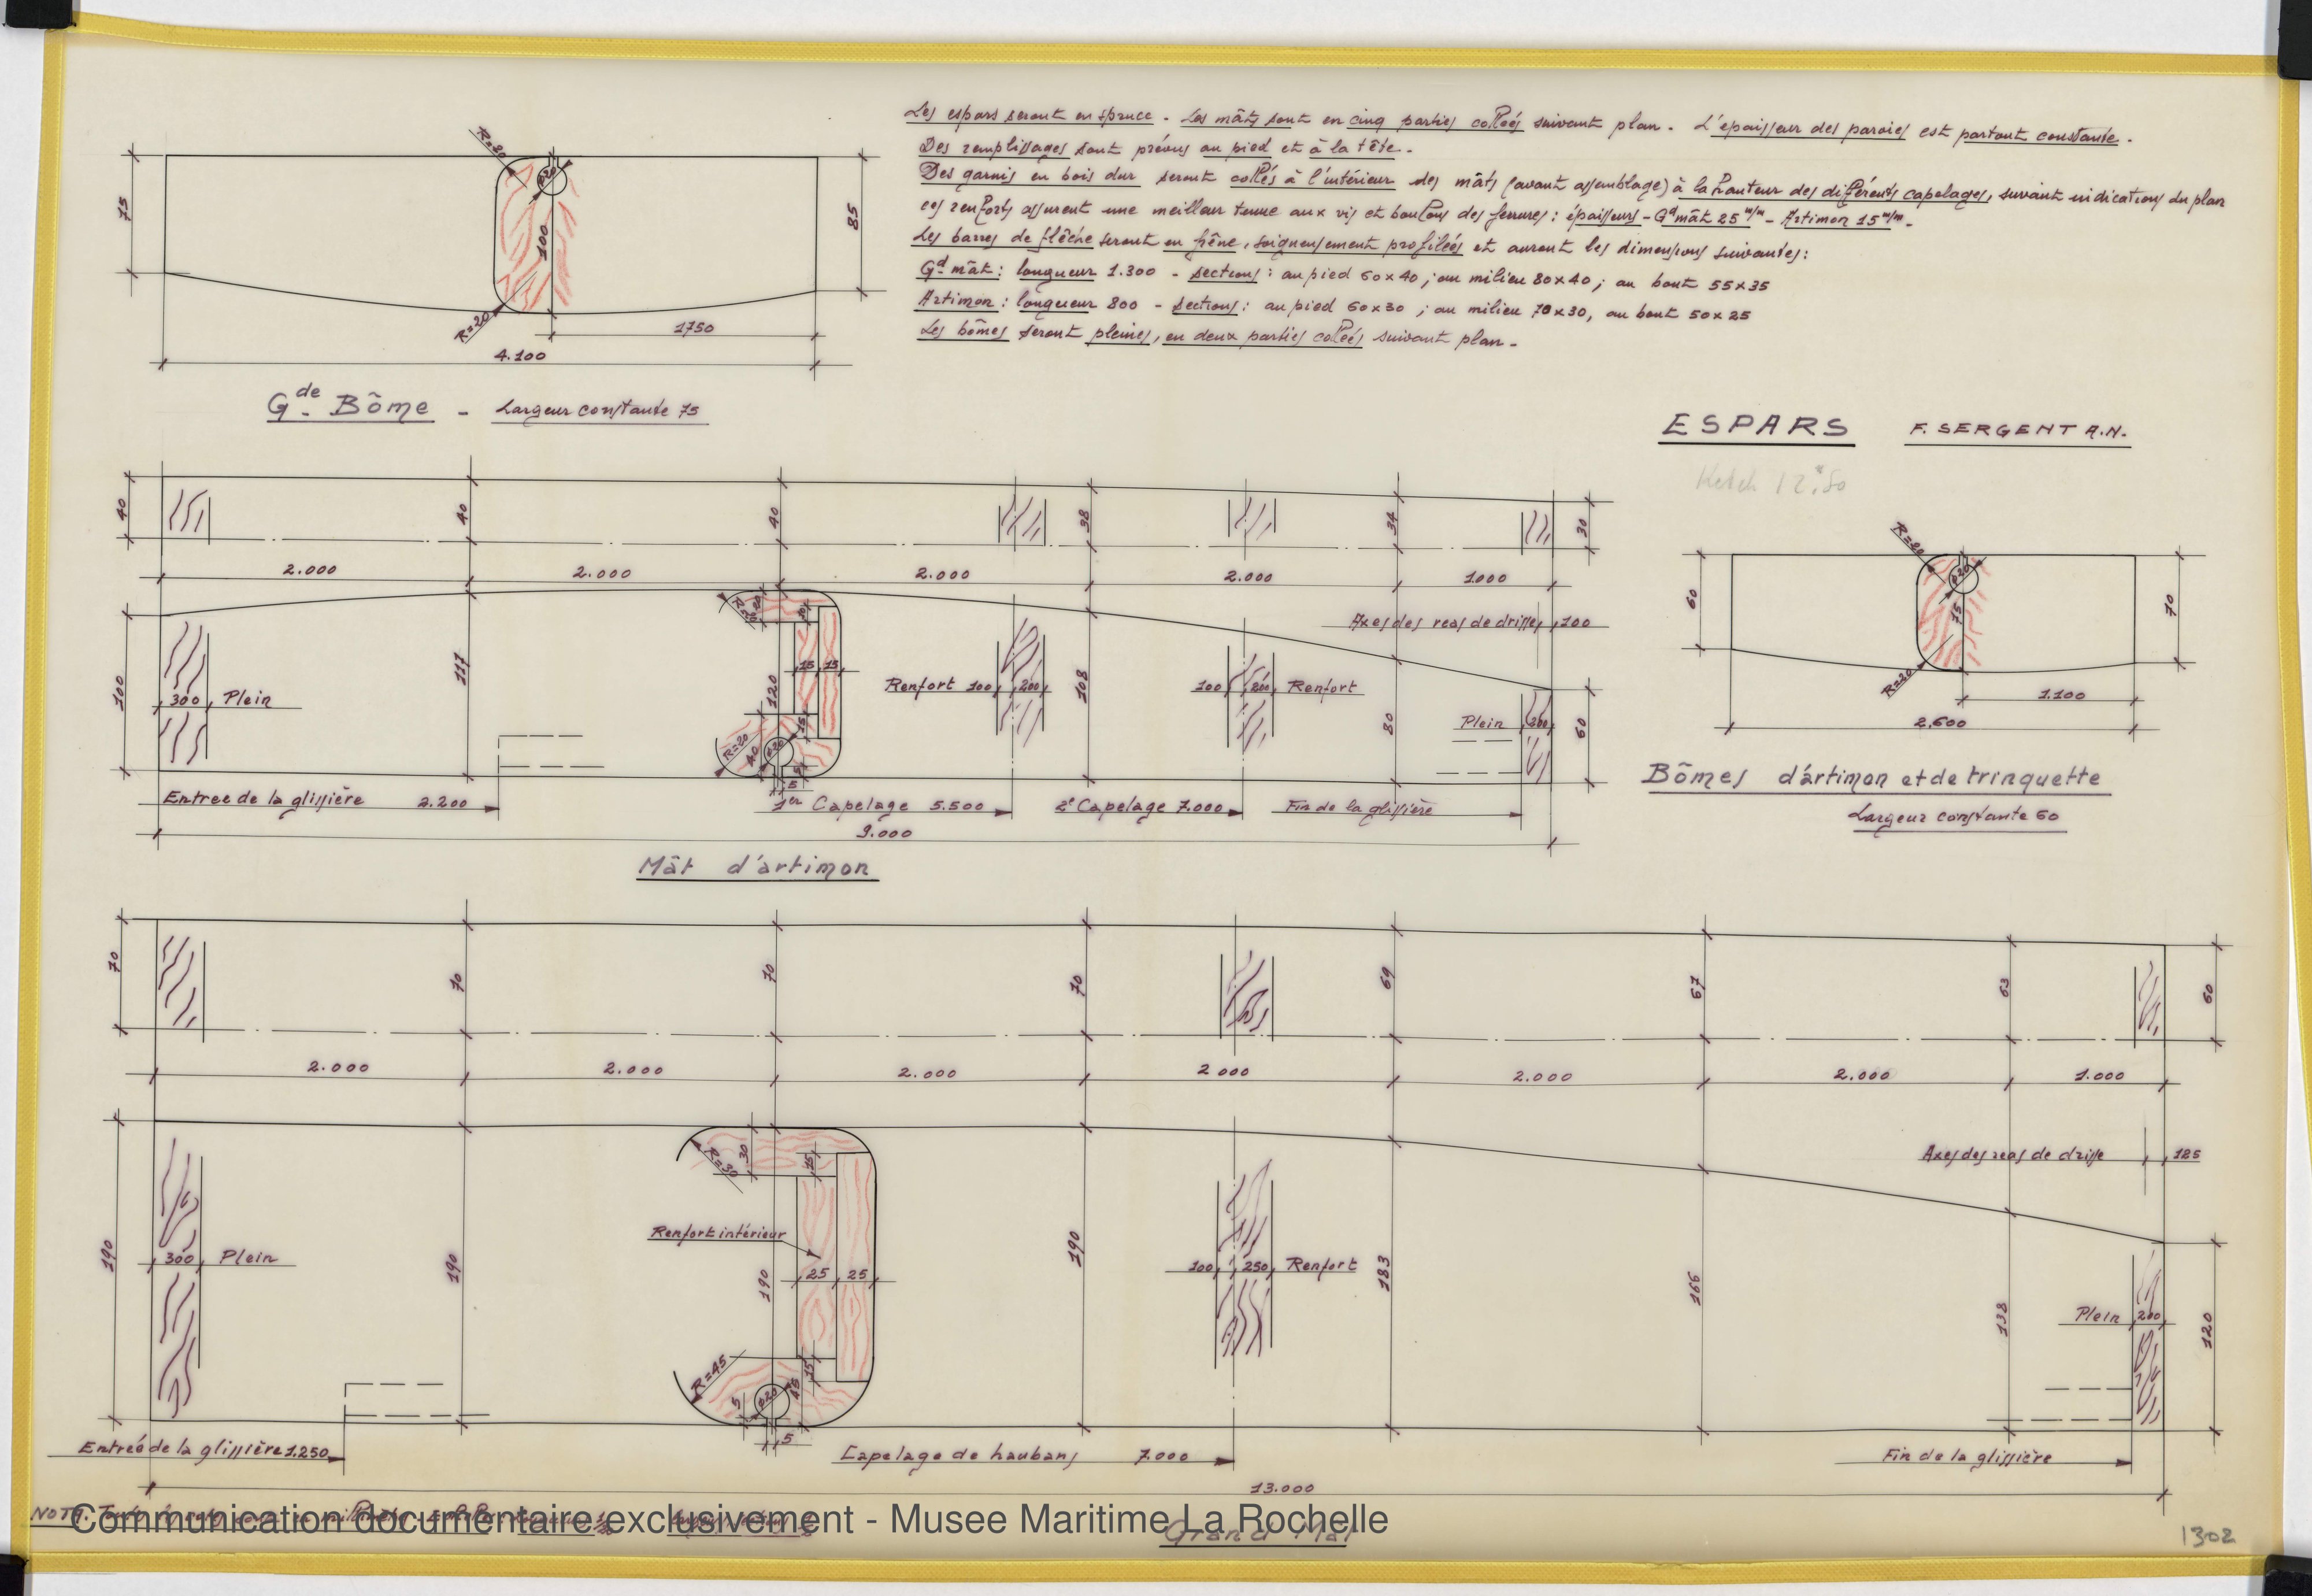 Les espars seront en spruce - Les mâts sont en cinq parties collées suivant plan - L'épaisseur des parois est partout constante.
Des remplissages sont prévus au pied et à la tête.
Des garnis en bois dur seront collés à l'intérieur des mâts (avant assemblage) à la hauteur des différents capelages, suivant indications du plan
ces renforts assurent une meilleur tenue aux vis et boulons des ferrures : épaisseurs - Gd mât 25 m/m - Artimon 15 m/m -
Les barres de flèche seront en frêne, soigneusement profilées et auront les dimensions suivantes :
Gd mât : longueur 1.300 - sections : au pied 60x40 ; au milieu 80x40 ; au bout 55x35
Artimon : longueur 800 - sections : au pied 60x30 ; au milieu 70x30, au bout 50x25
Les bômes seront pleines, en deux parties collées suivant plan -
R=20
ø20
75
100
85
R=20
1750
4.100
Gde Bôme - Largeur constante 75
ESPARS F. SERGENT A.N.
Ketch 12.50
40 40 40 38 34 30
2.000 2.000 2.000 2.000 1.000
R=20
Axes des reas de drisse 100
15 15
100 117 120 108 80 60
300 Plein
Renfort 100 200
100 200 Renfort
Plein 200
R=20 40 ø20 15
5
5
Entree de la glissière 2.200
1er Capelage 5.500
2e Capelage 7.000
Fin de la glissière
9.000
Mât d'artimon
R=20
ø20
60
75
70
R=20
1.100
2.600
Bômes d'artimon et de trinquette
Largeur constante 60
70 70 70 70 69 67 63 60
2.000 2.000 2.000 2 000 2.000 2.000 1.000
R=30 30 15
Axes des reas de drisse 125
Renfort intérieur
25 25
190 190 190 190 183 166 138 120
300 Plein
100 250 Renfort
Plein 200
R=45 5 ø20 45 15
5
Entreé de la glissière 1.250
Capelage de haubans 7.000
Fin de la glissière
13.000
NOTA.
Communication documentaire exclusivement - Musee Maritime La Rochelle
Grand Mât
1302